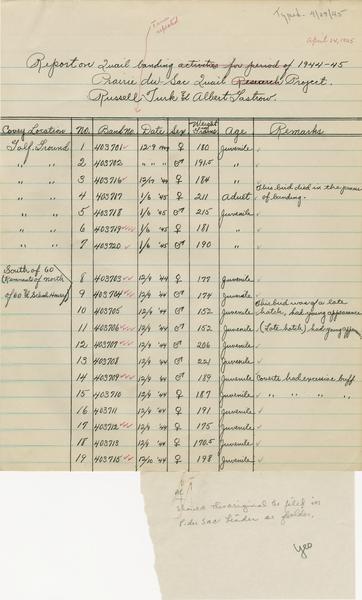 Typed. 4/29/45
Term repeated
April 24, 1945
Report on Quail banding activities for period of 1944-45
Prairie du Sac Quail Research Project.
Russell Turk & Albert Gastrow.
Covey Location No. Band No. Date Sex Weight Grams Age Remarks
Golf Ground 1 403701 12-9 1944 ♀ 180 Juvenile
" " 2 403702 " " " ♂ 191.5 "
" " 3 403716 12/17 '44 ♂ 184 "
" " 4 403717 1/6 '45 ♀ 211 Adult This bird died in the process of banding.
" " 5 403718 1/6 '45 ♂ 215 Juvenile
" " 6 403719 1/6 '45 ♀ 181 "
" " 7 403720 1/6 '45 ♂ 190 "
South of 60 8 403703 12/9 '44 ♀ 177 Juvenile
(Remnants of North 9 403704 12/9 '44 ♂ 174 Juvenile
of 60 & School House) 10 403705 12/9 '44 ♂ 152 Juvenile This bird was of a late hatch, had young appearance
11 403706 12/9 '44 ♂ 152 Juvenile (Late hatch) had young appear
12 403707 12/9 '44 ♂ 206 Juvenile
13 403708 12/9 '44 ♂ 221 Juvenile
14 403709 12/9 '44 ♂ 189 Juvenile Coverts had excessive buff
15 403710 12/9 '44 ♀ 187 Juvenile " " " "
16 403711 12/9 '44 ♀ 191 Juvenile
17 403712 12/9 '44 ♀ 175 Juvenile
18 403713 12/9 '44 ♀ 170.5 Juvenile
19 403715 12/10 '44 ♀ 198 Juvenile
al
Should this original be filed in
P. du Sac binder or folder.
Yes